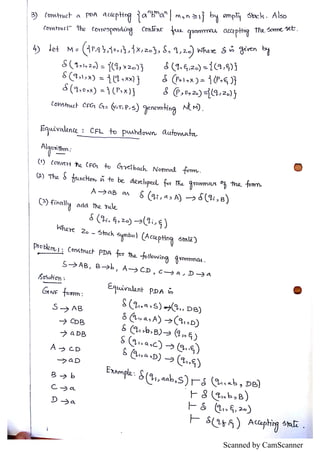 3) Construct a PDA accepting {aⁿbᵐaⁿ | m,n ≥ 1} by empty stack. Also
construct the corresponding context free grammar accepting the same set.
4) Let M = ({p,q},{0,1},{x,z0}, δ, q, z0) where δ is given by
δ(q,1,z0) = {(q,xz0)} δ(q,ε,z0) = {(q,ε)}
δ(q,1,x) = {(q,xx)} δ(p,1,x) = {(p,ε)}
δ(q,0,x) = {(p,x)} δ(p,0,z0) = {(q,z0)}
Construct CFG G = (V,T,P,S) generating N(M).
Equivalence : CFL to pushdown automata
Algorithm:
(1) Convert the CFG to Greibach Normal form.
(2) The δ function is to be developed for the grammar of the form
A → aB as δ(q1, a, A) → δ(q1, B)
(3) Finally add the rule
δ(q1, ε, z0) → (q1, ε)
Where z0 - Stack symbol (Accepting state)
Problem 1: Construct PDA for the following grammar.
S → AB, B → b, A → CD, C → a, D → a
Solution:
GNF form: Equivalent PDA is
S → AB δ(q1, a, S) → (q1, DB)
→ CDB δ(q1, a, A) → (q1, D)
→ aDB δ(q1, b, B) → (q1, ε)
A → CD δ(q1, a, C) → (q1, ε)
→ aD δ(q1, a, D) → (q1, ε)
B → b Example: δ(q1, aab, S) ⊢ δ(q1, ab, DB)
C → a ⊢ δ(q1, b, B)
D → a ⊢ δ(q1, ε, z0)
⊢ δ(q1, ε) Accepting state.
Scanned by CamScanner